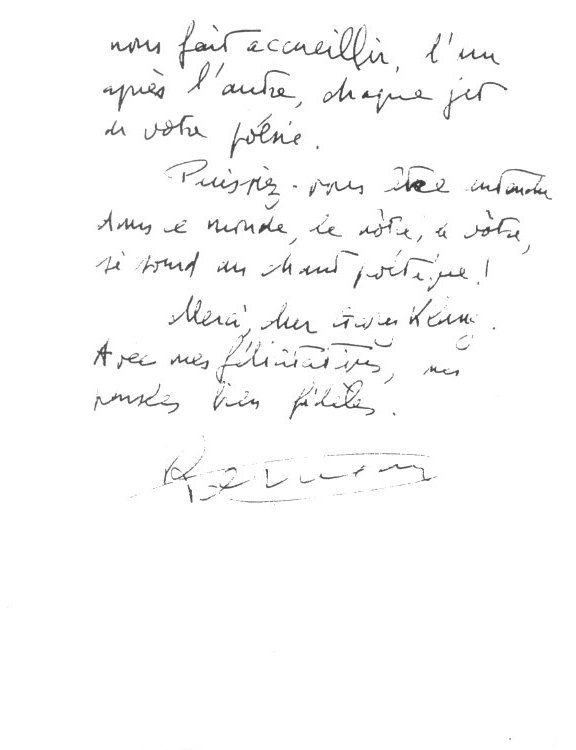 nous fait accueillir, l'un
après l'autre, chaque jet
de votre poésie.
Puissiez-vous être entendu
dans ce monde, le nôtre, le vôtre,
si sourd au chant poétique !
Merci, cher
Avec mes félicitations, mes
pensées bien fidèles.